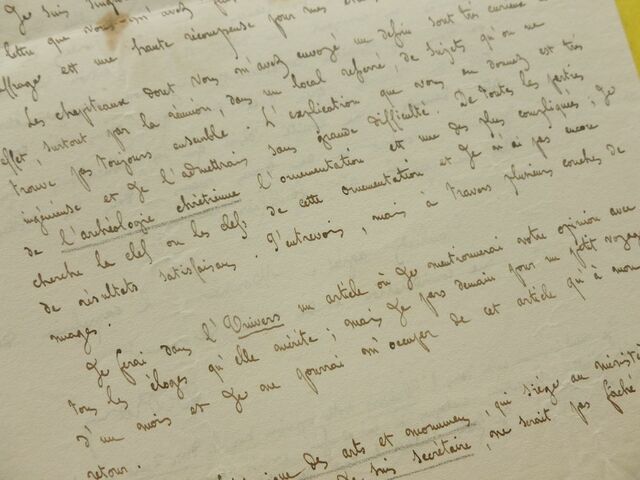 Je suis
lettre que vous m'avez
suffrage est une haute récompense pour mes
Les chapiteaux dont vous m'avez envoyé un dessin sont très curieux
effet, surtout par la réunion, dans un local resserré, de sujets qu'on ne
trouve pas toujours ensemble. L'explication que vous en donnez est très
ingénieuse et je l'admettrais sans grande difficulté. De toutes les parties
de l'archéologie chrétienne l'ornementation est une des plus compliquées ; je
cherche la clef ou les clefs de cette ornementation et je n'ai pas encore
de résultats satisfaisans. J'entrevois, mais à travers plusieurs couches de
nuages.
Je ferai dans l'Univers un article où je mentionnerai votre opinion avec
tous les éloges qu'elle mérite ; mais je pars demain pour un petit voyage
d'un mois et je ne pourrai m'occuper de cet article qu'à mon
retour.
des arts et monumens, qui siège au ministè
je suis secrétaire, ne serait pas fâché